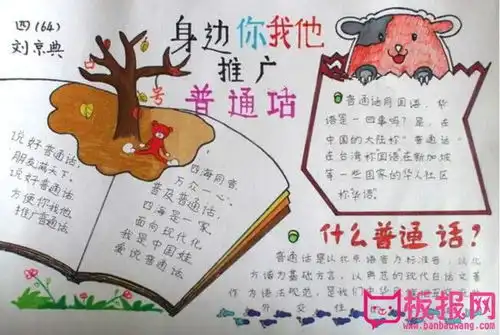 四(64)
刘京典
身边你我他
推广
普通话
说好普通话
朋友满天下
说好普通话
方便你我他
推广普通话
四海同音
万众一心
普及普通话
四海是一家
面向现代化
我是中国娃
爱说普通话
普通话同国语，华
语是一回事吗？是，在
中国的大陆称"普通话
在台湾称国语在新加坡
等一些国家的华人社区
称华语。
什么普通话？
普通话是以北京语音为标准音，以北
方话为基础方言，以典范的现代白话文著
作为语法规范，是我们中华民
外交
板报网
www.banbaowang.com